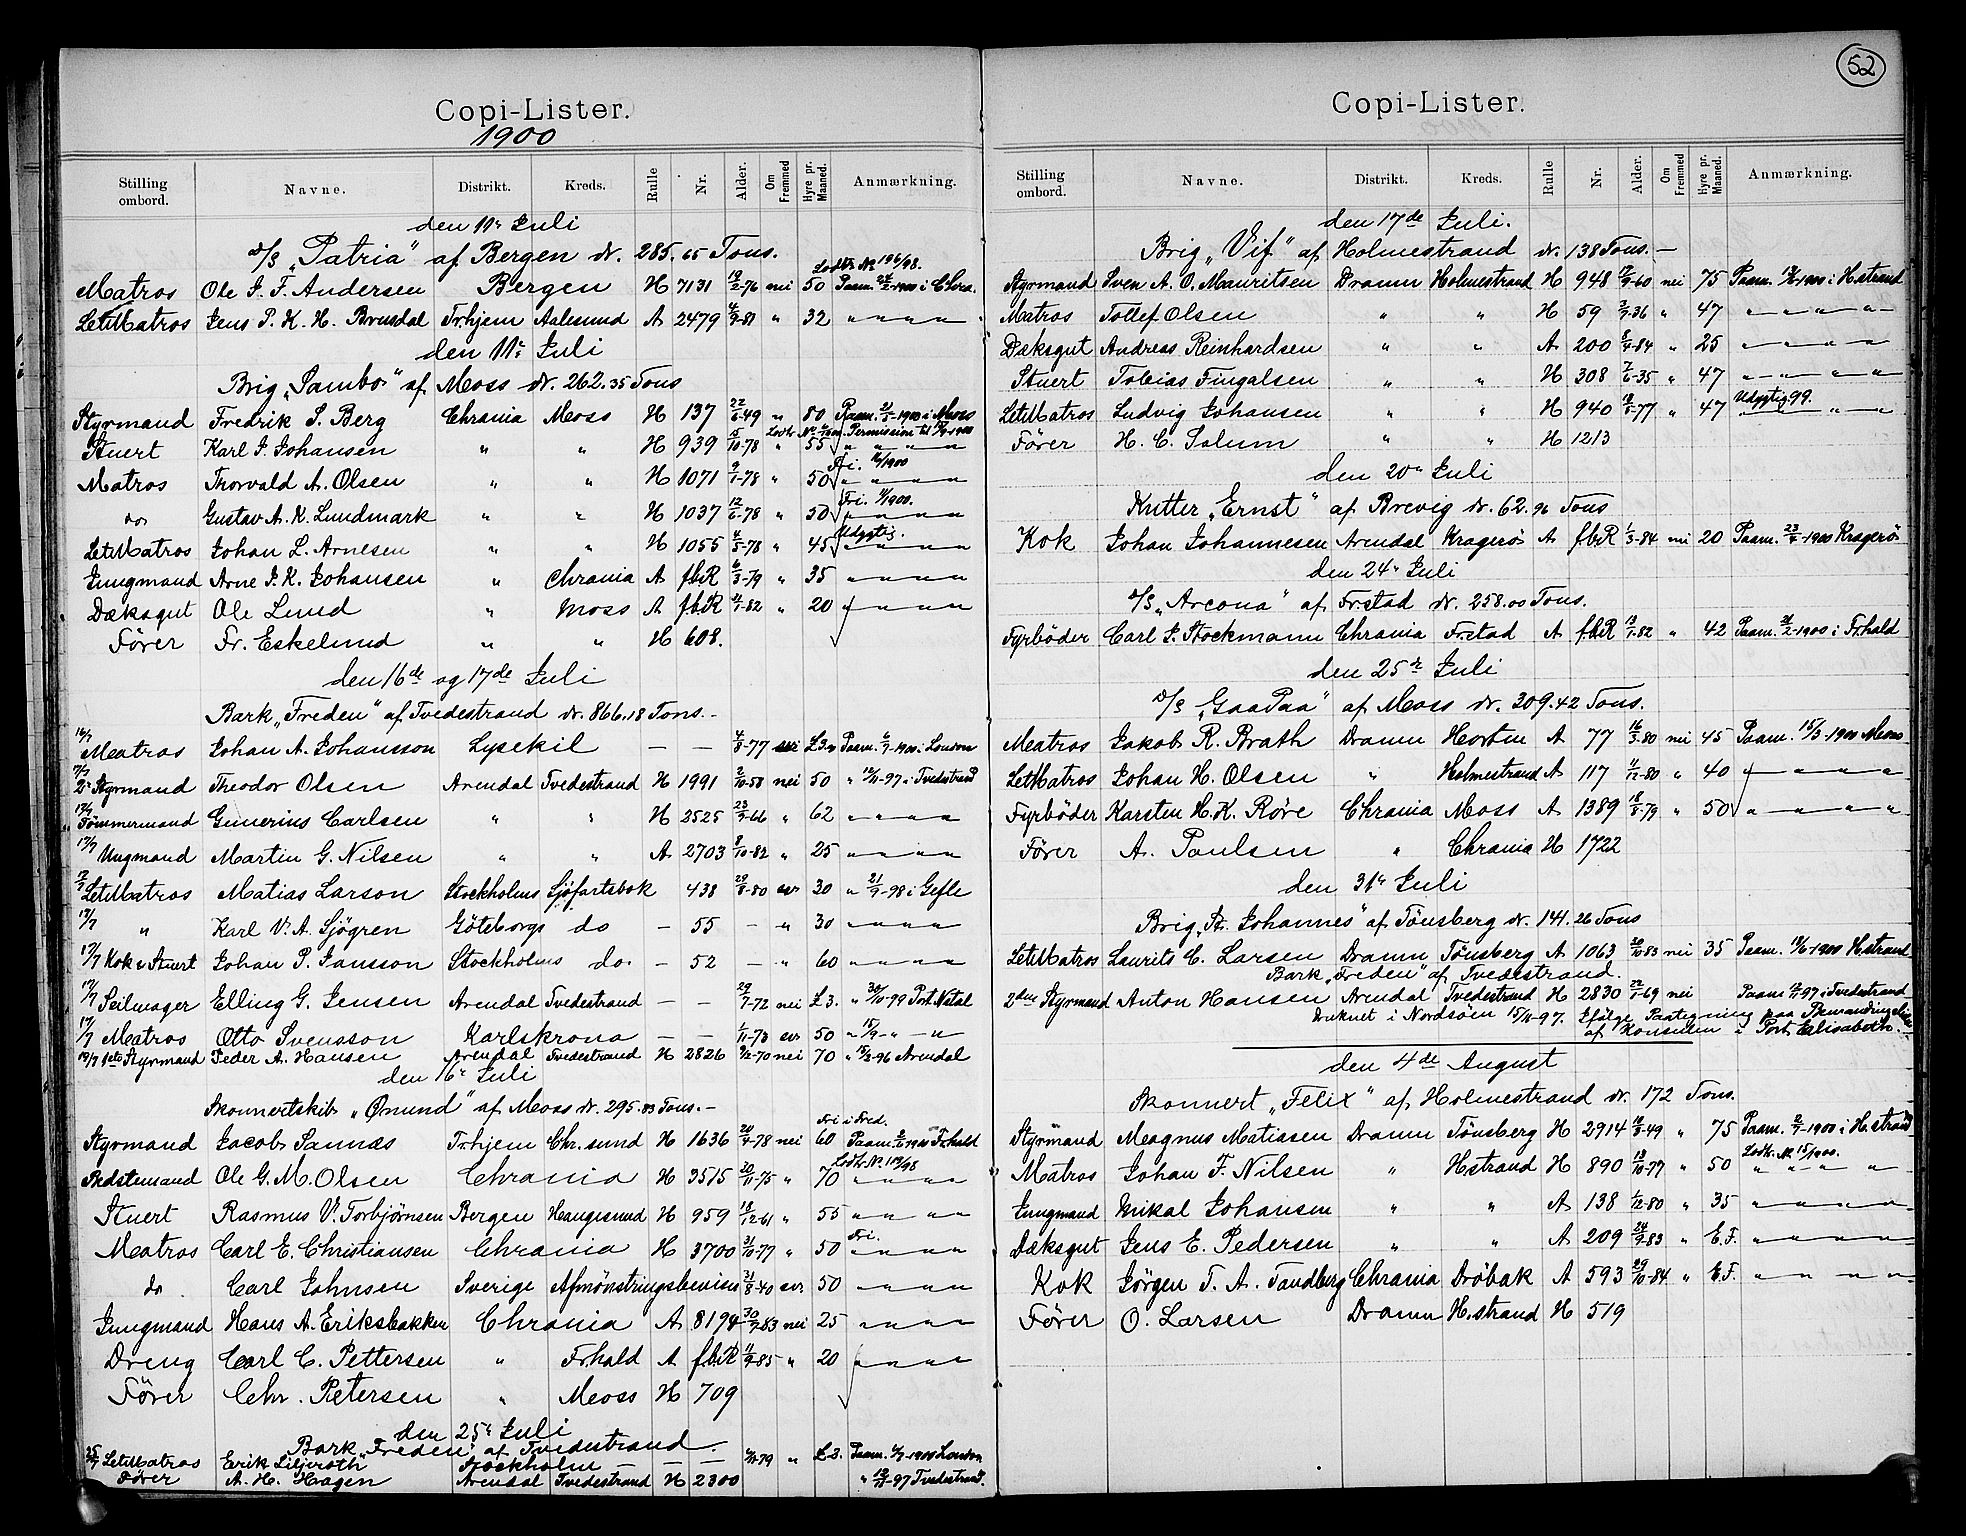 Copi-Lister.
1900
Stilling ombord. Navne. Distrikt. Kreds. Rulle Nr. Alder. Om Fremmed Hyre pr. Maaned. Anmærkning.
den 11te Juli
D/S „Patria" af Bergen dr. 285.65 Tons.
Lodts No 196/98.
Matros Ole J. F. Andersen Bergen H 7131 19/2-76 nei 50 Paam. 24/2-1900 i Chra.
LetMatros Jens P. K. H. Brusdal Tr.hjem Aalesund A 2479 4/9-81 " 32 " " " "
den 11te Juli
Brig „Sambo" af Moss dr. 262.35 Tons
Styrmand Fredrik S. Berg Chrania Moss H 137 22/6-49 " 80 Paam. 21/5-1900 i Moss
Stuert Karl J. Johansen " " H 939 15/10-78 55 " " " "
Matros Thorvald A. Olsen " " H 1071 9/1-78 " 50 " " " "
do Gustav A. K. Lundmark " " H 1037 12/6-78 " 50 " " " "
Udygtig.
LetMatros Johan L. Arnesen " " H 1055 4/5-78 " 45 " " " "
Jungmand Arne J. K. Johansen " Chrania A fbR 6/3-79 " 35 " " " "
Dæksgut Ole Lund " Moss A fbR 4/1-82 " 20 " " " "
Fører Fr. Eskelund " " H 608.
den 16de og 17de Juli
Bark „Freden" af Tvedestrand dr. 866.18 Tons.-
16/7 Matros Johan A. Johansson Lysekil — — 4/8-77 sv £3. Paam. 6/7-1900 i London
17/7 2n Styrmand Theodor Olsen Arendal Tvedestrand H 1991 2/10-58 nei 50 " 12/11-97 i Tvedestrand
17/7 Tømmermand Gunerius Carlsen " " H 2525 23/9-66 " 62 " " " "
17/7 Ungmand Martin G. Nilsen " " A 2703 8/10-82 " 25 " " " "
17/7 LetMatros Matias Larson Stockholms Sjöfartsbok 438 29/8-80 sv 30 " 21/9-98 i Gefle
17/7 " Karl V. A. Sjögren Göteborgs do — 55 — " 30 " " " "
17/7 Kok & Stuert Johan P. Jansson Stockholms do. — 52 — " 60 " " " "
17/7 Seilmager Elling G. Jensen Arendal Tvedestrand — — 29/7-72 nei £3. " 30/10-99 Port Natal
17/7 Matros Otto Svensson Karlskrona — — 1/11-73 sv 50 " 15/9 - " - "
17/7 1ste Styrmand Peder A. Hansen Arendal Tvedestrand H 2826 9/12-70 nei 70 " 15/2-96 Arendal
den 16de Juli
Skonnertskib „Ømund" af Moss dr. 295.83 Tons.-
Fri i Fred.
Styrmand Jacob Sannæs Tr.hjem Chr.sund H 1636 20/4-78 nei 60 Paam. 5/6-1900 Fr.hald
Lodts No. 119/98
Bedstemand Ole G. M. Olsen Chrania H 3515 20/11-75 " 70 " " " "
Stuert Rasmus V. Torbjørnsen Bergen Haugesund H 959 18/12-61 " 55 " " " "
Fri.
Matros Carl E. Christiansen Chrania H 3700 31/10-77 " 50 " " " "
do. Carl Johnsen Sverige Afmønstringsbevis 31/8-40 sv. 50 " " " "
Jungmand Hans A. Eriksbakken Chrania A 8194 30/7-83 nei 25 " " " "
Dreng Carl C. Pettersen " Fr.hald A fbR 11/9-85 " 20 " " " "
Fører Chr. Petersen " Moss H 709
den 25de Juli
Bark „Freden" af Tvedestrand.
25/7 LetMatros Erik Liljeroth Stockholm — — -79 " £-3. Paam. 6/7-1900 London
Fører A. H. Haagen Arendal Tvedestrand H 2300 " -97 Tvedestrand.
52
Copi-Lister.
Stilling ombord. Navne. Distrikt. Kreds. Rulle Nr. Alder. Om Fremmed Hyre pr. Maaned. Anmærkning.
den 17de Juli.
Brig „Vif" af Holmestrand dr. 138 Tons.—
Styrmand Sven A. O. Mauritsen Dramn Holmestrand H 948 12/9-60 nei 75 Paam. 12/6-1900 i H.strand
Matros Tollef Olsen " " H 59 2/7-36 " 47 " " " "
Dæksgut Andreas Reinhardsen " " A 200 8/4-84 " 25 " " " "
Stuert Tobias Fingalsen " " H 308 7/6-35 " 47 " " " "
Udygtig 99.
LetMatros Ludvig Johansen " " H 940 18/8-77 " 47 " " "
Fører H. C. Solum " " H 1213
den 20de Juli
Kutter „Ernst" af Brevig dr. 62.96 Tons
Kok Johan Johannesen Arendal Kragerø A fbR 1/3-84 nei 20 Paam. 23/4-1900 Kragerø
den 24de Juli
D/S „Arcona" af Fr.stad dr. 258.00 Tons.
Fyrbøder Carl J. Stockmann Chrania Fr.stad A fbR 13/1-82 " 42 Paam. 21/2-1900 i Fr.hald
den 25de Juli
D/S „GaaPaa" af Moss dr. 309.42 Tons.
Matros Jakob R. Brath Dramn Horten A 77 16/3-80 nei 45 Paam. 15/3-1900 Moss
LetMatros Johan H. Olsen " Holmestrand A 117 11/12-80 " 40 " " " "
Fyrbøder Karsten H. K. Røre Chrania Moss A 1389 18/8-79 " 50 " " " "
Fører A. Paulsen " Chrania H 1722
den 31te Juli
Brig „St. Johannes" af Tønsberg dr. 141.26 Tons
LetMatros Laurits C. Larsen Dramn Tønsberg A 1063 20/10-83 nei 35 Paam. 19/6-1900 H.strand
Bark „Freden" af Tvedestrand.
2den Styrmand Anton Hansen Arendal Tvedestrand H 2830 22/1-69 nei Paam. 12/11-97 i Tvedestrand
Druknet i Nordsøen 15/11-97. Ifølge Paategning paa
af Konsulen i Port Elisabeth.
den 4de August
Skonnert „Felix" af Holmestrand dr. 172 Tons.
Styrmand Magnus Matiasen Dramn Tønsberg H 2914 18/9-49 " 75 Paam. 2/7-1900 i H.strand
Lodts. No 15/1900.
Matros Johan F. Nilsen " H.strand H 890 13/10-77 " 50 " " " "
Jungmand Mikal Johansen " " A 138 1/12-80 " 35 " " " "
Dæksgut Jens E. Pedersen " " A 209 24/9-83 " E.F. " " " "
Kok Jørgen T. A. Tandberg Chrania Drøbak A 593 29/10-84 " E.F. " " " "
Fører O. Larsen Dramn H.strand H 519